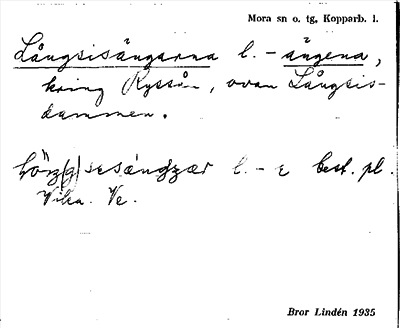 Mora sn o. tg, Kopparb. l.
Långsisängarna l. -ängena,
kring Ryssån, ovan Långsis-
dammen.
l. - best. pl.
Vika. Ve.
Bror Lindén 1935